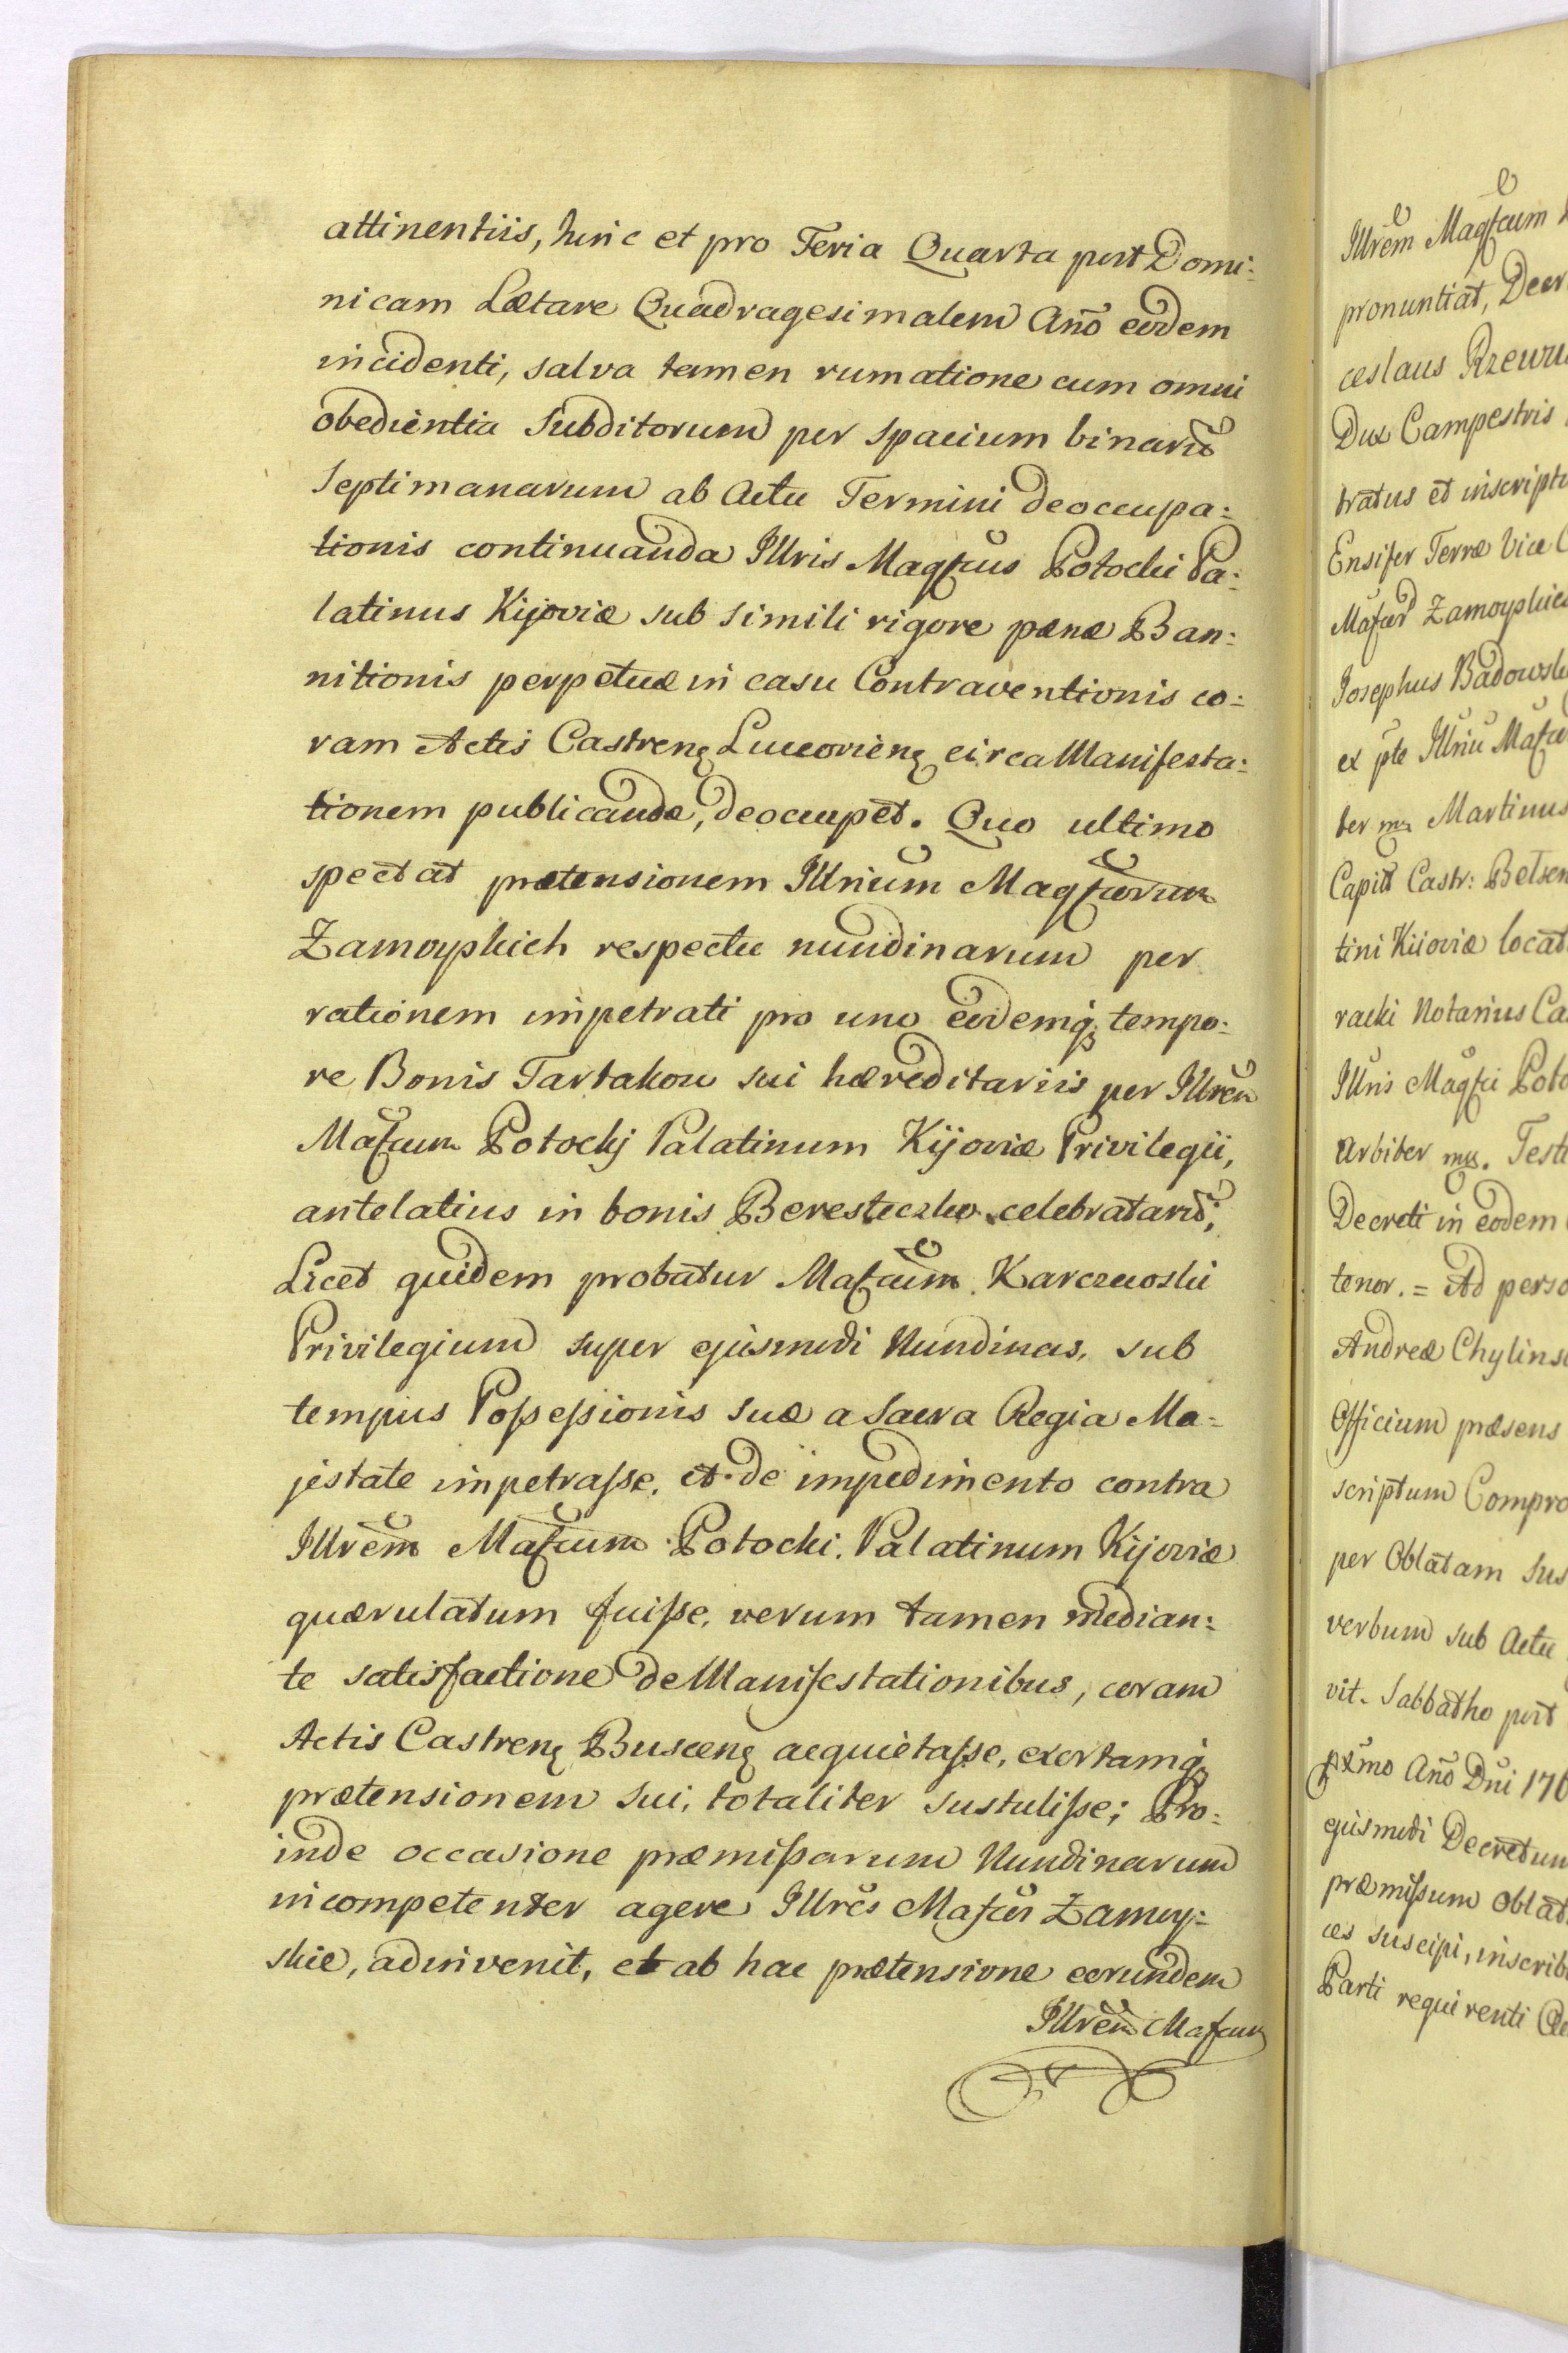 attinentiis, hinc et pro Feria Quarta post Domi:
nicam Lætare Quadragesimalem Anõ eodem
incidenti, salva tamen rumatione cum omni
obedientia Subditorum per spacium binarũ
Septimanarum ab Actu Termini deoccupa:
tionis continuanda Illris Magfcus Potocki Pa:
latinus Kijoviæ sub simili rigore pænæ Ban:
nitionis perpetuæ in casu Contraventionis co:
ram Actis Castreng Luceorieng circa Manifesta:
tionem publicandæ, deoccupet. Quo ultimo
spectat prætensionem Illrium Magfcorum
Zamoyskich respectu nundinarum per
rationem impetrati pro uno eodemq; tempo:
re Bonis Tartakow sui hæreditariis per Illrem
Mafcum Potockj Palatinum Kijoviæ Privilegii,
antelatius in bonis Beresteczko celebratarũ;
Licet quidem probatur Mafcum Karczewski
Privilegium super ejusmodi Nundinas, sub
tempus Possessionis suæ a Sacra Regia Ma=
jestate impetrasse, et de impedimento contra
Illrem Mafcum Potocki Palatinum Kijoviæ
quærulatum fuisse, verum tamen median:
te satisfactione de Manifestationibus, coram
Actis Castreng Busceng acquietasse, exortamq;
prætensionem sui, totaliter sustulisse; Pro:
inde occasione præmissarum Nundinarum
incompetenter agere Illres Mafcos Zamoy:
skie, adinvenit, et ab hac prætensione eorundem
Illrem Mafcum
Illrem Magfcum
pronuntiat,
ceslaus
Dux Campestris
tratus et
Ensifer Terræ
Mafcor Zamoyskich
Josephus
ex pte Illriũ
ter mp Martinus
Capit Castr:
tini Kiioviæ
racki Notarius
Illris Magfci
Arbiter mp.
Decreti in eodem
tenor. = Ad
Andreæ
Officium præsens
scriptum
per Oblatam
verbum sub Actu
vit. Sabbatho post
pxmo Anõ Dni
ejusmodi
præmissum
ces suscipi,
Parti requirenti